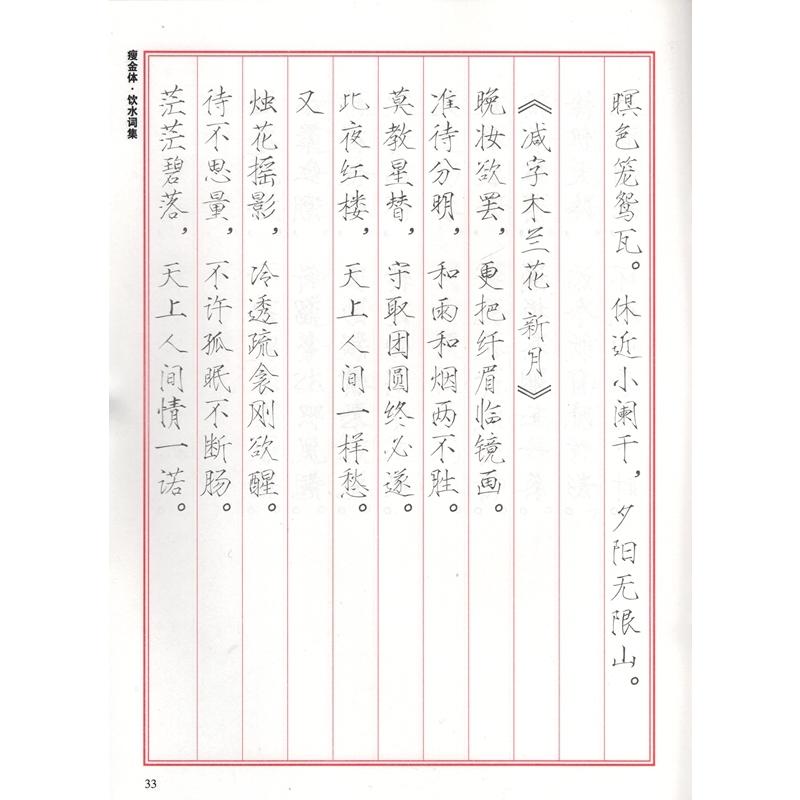 瘦金体·饮水词集
暝色笼鸳瓦。休近小阑干，夕阳无限山。
《减字木兰花 新月》
晚妆欲罢，更把纤眉临镜画。
准待分明，和雨和烟两不胜。
莫教星替，守取团圆终必遂。
此夜红楼，天上人间一样愁。
又
烛花摇影，冷透疏衾刚欲醒。
待不思量，不许孤眠不断肠。
茫茫碧落，天上人间情一诺。
33